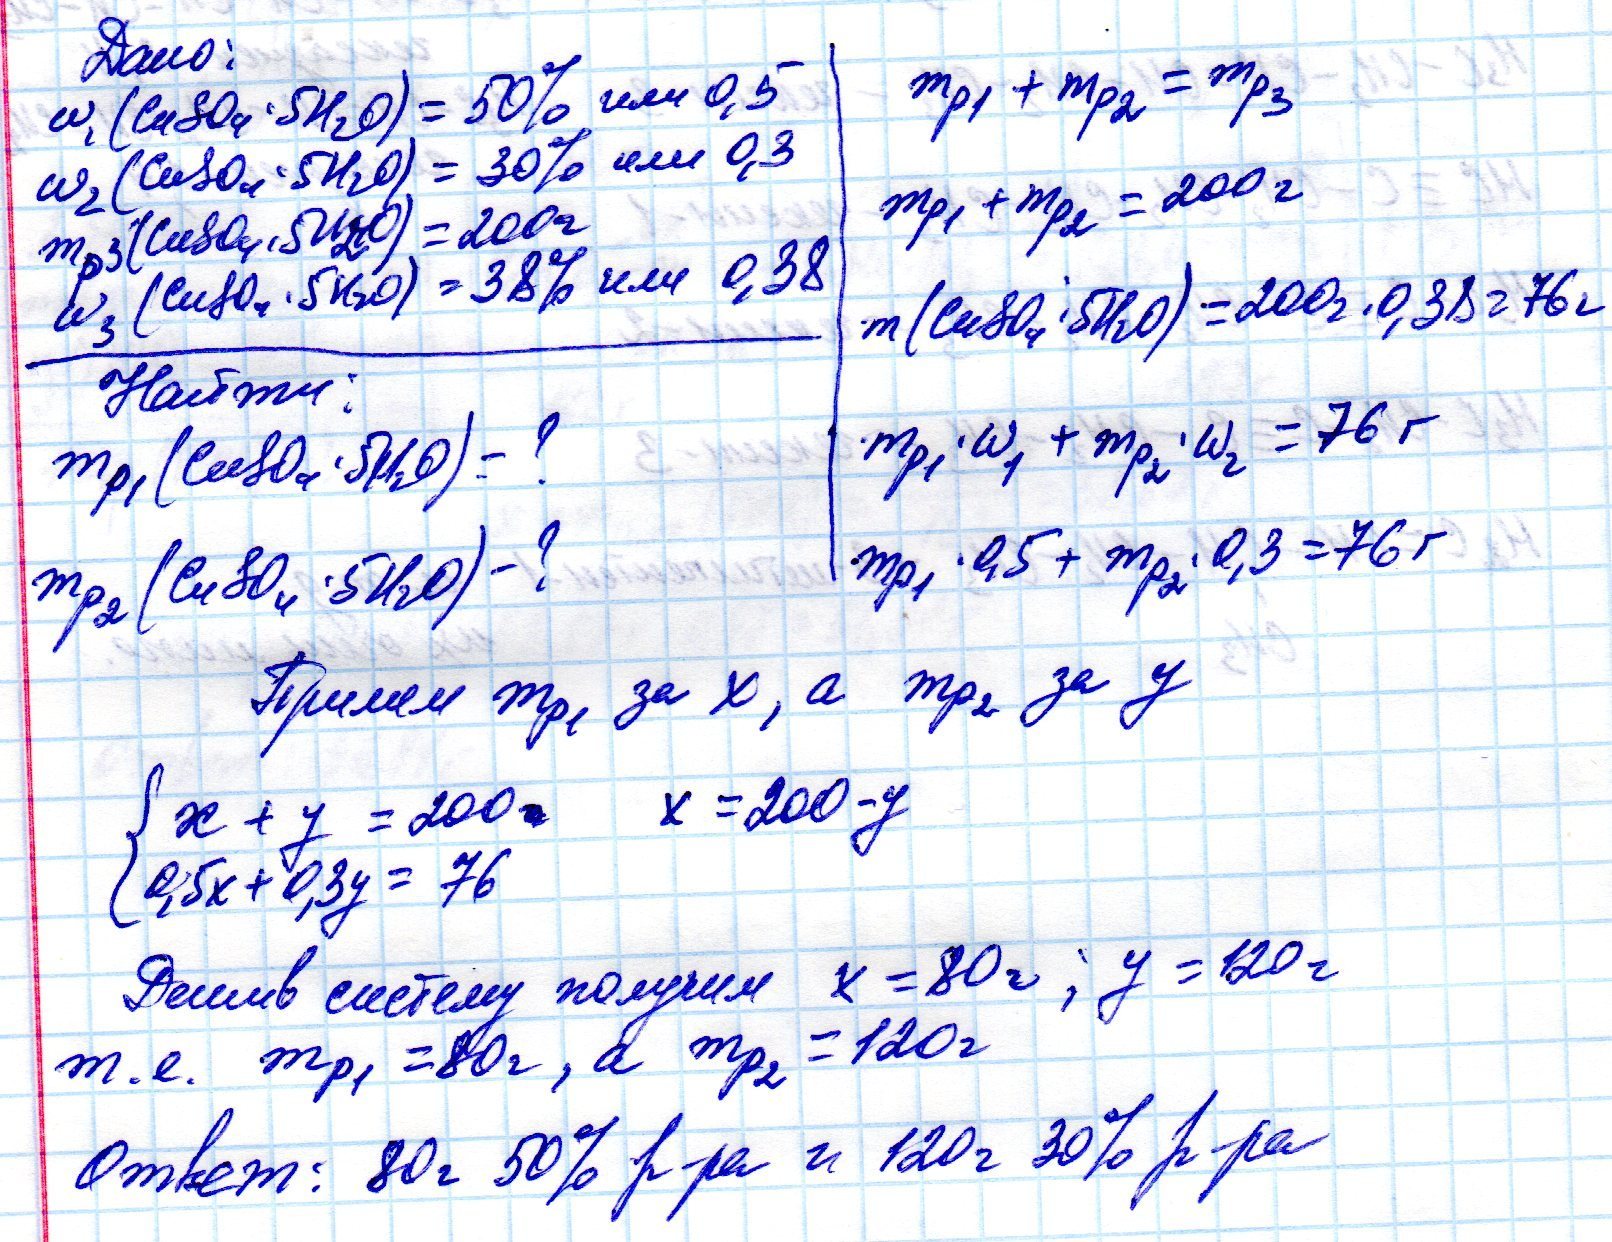 Дано:
ω₁(CuSO₄·5H₂O) = 50% или 0,5
ω₂(CuSO₄·5H₂O) = 30% или 0,3
mр₃(CuSO₄·5H₂O) = 200г
ω₃(CuSO₄·5H₂O) = 38% или 0,38
Найти:
mр₁(CuSO₄·5H₂O) = ?
mр₂(CuSO₄·5H₂O) - ?
mр₁ + mр₂ = mр₃
mр₁ + mр₂ = 200г
m(CuSO₄·5H₂O) = 200г·0,38 = 76г
mр₁·ω₁ + mр₂·ω₂ = 76г
mр₁·0,5 + mр₂·0,3 = 76г
Примем mр₁ за x, а mр₂ за y
{ x + y = 200 x = 200-y
0,5x + 0,3y = 76
Решив систему получим x = 80г; y = 120г
т.е. mр₁ = 80г, а mр₂ = 120г
Ответ: 80г 50% р-ра и 120г 30% р-ра